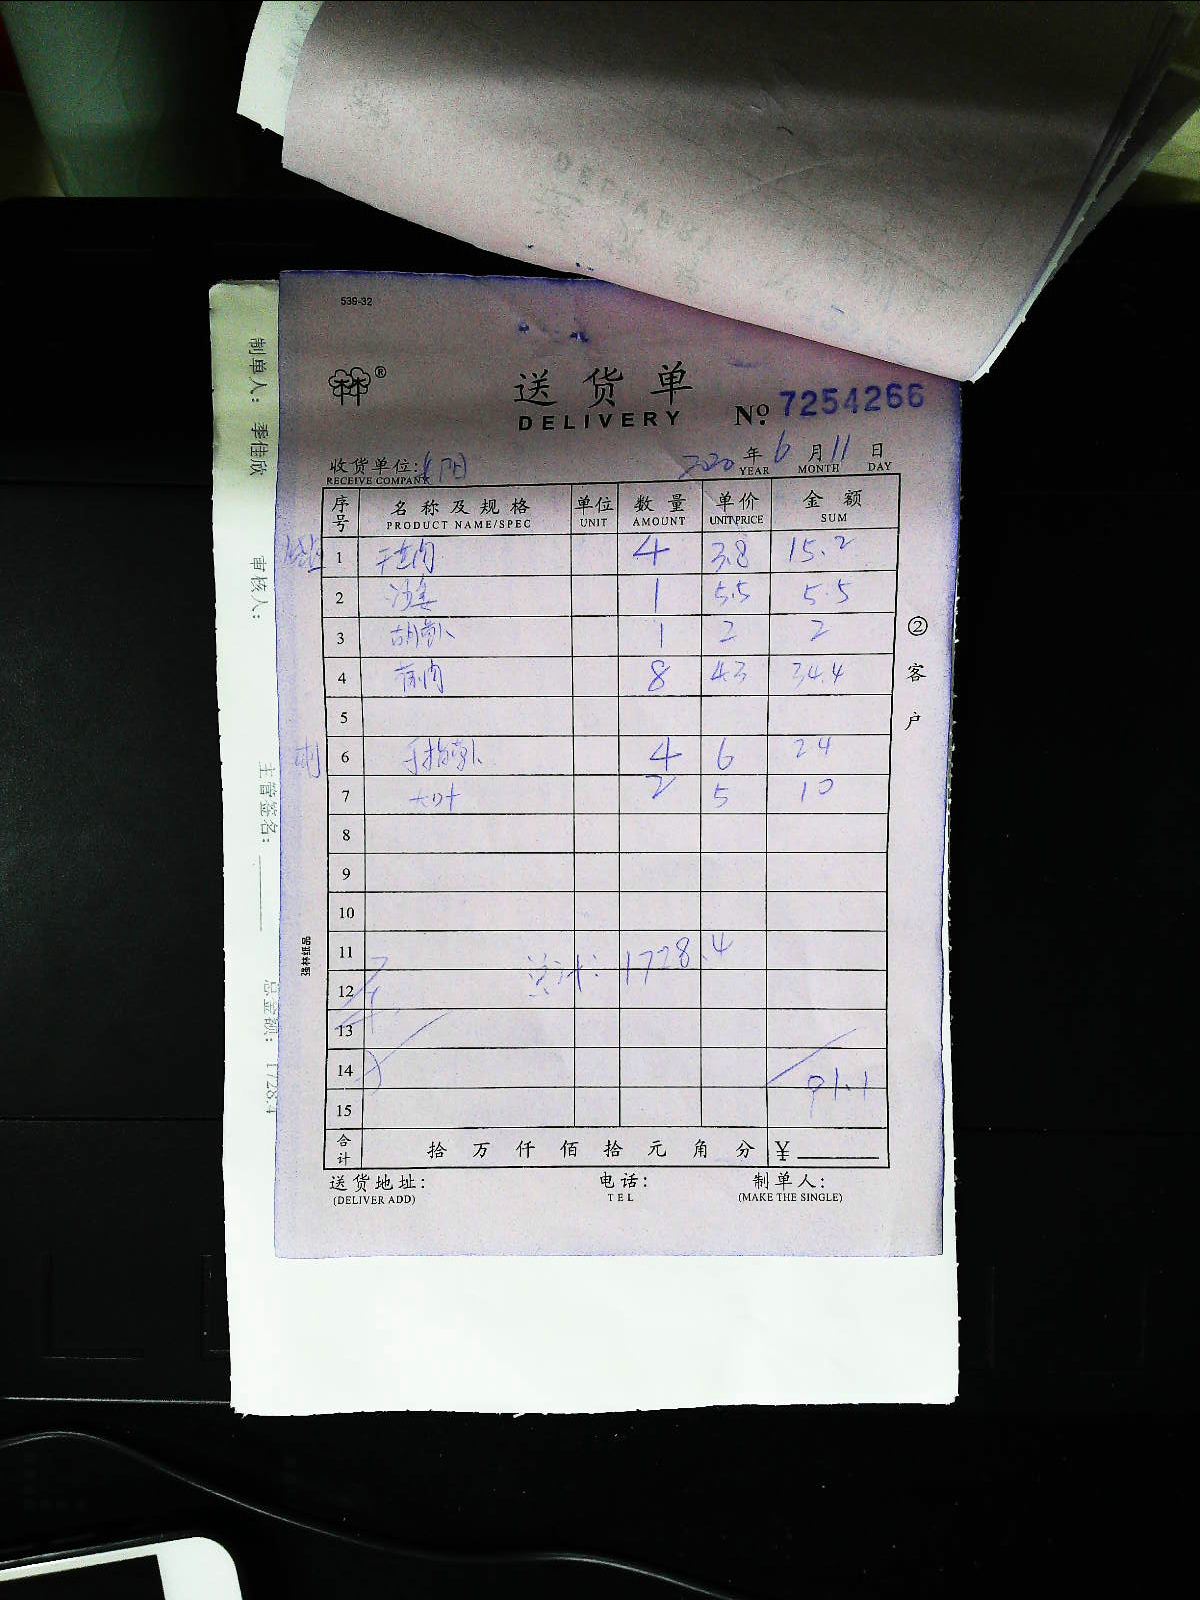 539-32
林林®
送货单
DELIVERY
No. 7254266
收货单位: 阳 2020 年 6 月 11 日
RECEIVE COMPANY YEAR MONTH DAY
序号 名称及规格 单位 数量 单价 金额
PRODUCT NAME/SPEC UNIT AMOUNT UNIT PRICE SUM
1 4 3.8 15.2
2 沙姜 1 5.5 5.5
3 胡萝卜 1 2 2
4 8 4.3 34.4
5
6 手指萝卜 4 6 24
7 2 5 10
8
9
10
11
总计: 1728.4
12
13
14
91.1
15
合计 拾 万 仟 佰 拾 元 角 分 ¥
送货地址: 电话: 制单人:
(DELIVER ADD) TEL (MAKE THE SINGLE)
②客户
强林纸品
制单人: 季佳欣
审核人:
主管签名:
总金额: 1728.4